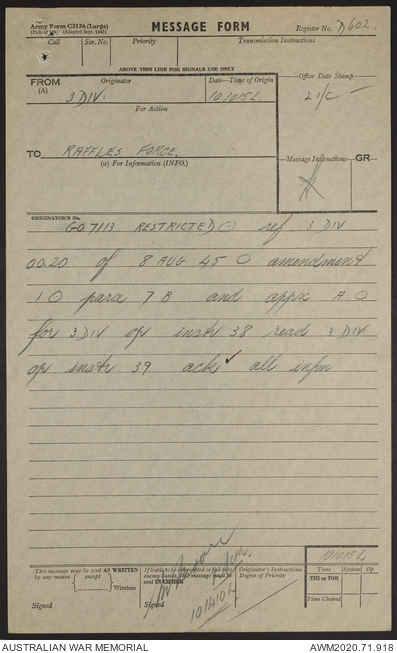 Army Form C2136 (Large)
(Pads of 100) (Adapted Sept. 1941)
MESSAGE FORM
Register No. D602.
Call Ser. No. Priority Transmission Instructions
ABOVE THIS LINE FOR SIGNALS USE ONLY
FROM Originator Date—Time of Origin Office Date Stamp
(A) 3 DIV. 101015L 2 i/c
For Action
TO RAFFLES FORCE.
(W) For Information (INFO.)
Message Instructions GR
ORIGINATOR'S No.
GO 7113 RESTRICTED O ref 3 DIV
OO20 of 8 AUG 45 O amendment
1 O para 7 B and appx A O
for 3 DIV op instr 38 read 3 DIV
op instr 39 ack ✓ all infm
101015L
This message may be sent AS WRITTEN
by any means except
Wireless
If liable to be intercepted or fall into
enemy hands, this message must be
sent IN CIPHER
Originator's Instructions
Degree of Priority
Time System Op
THI or TOR
Time Cleared
Signed
Signed
101410L